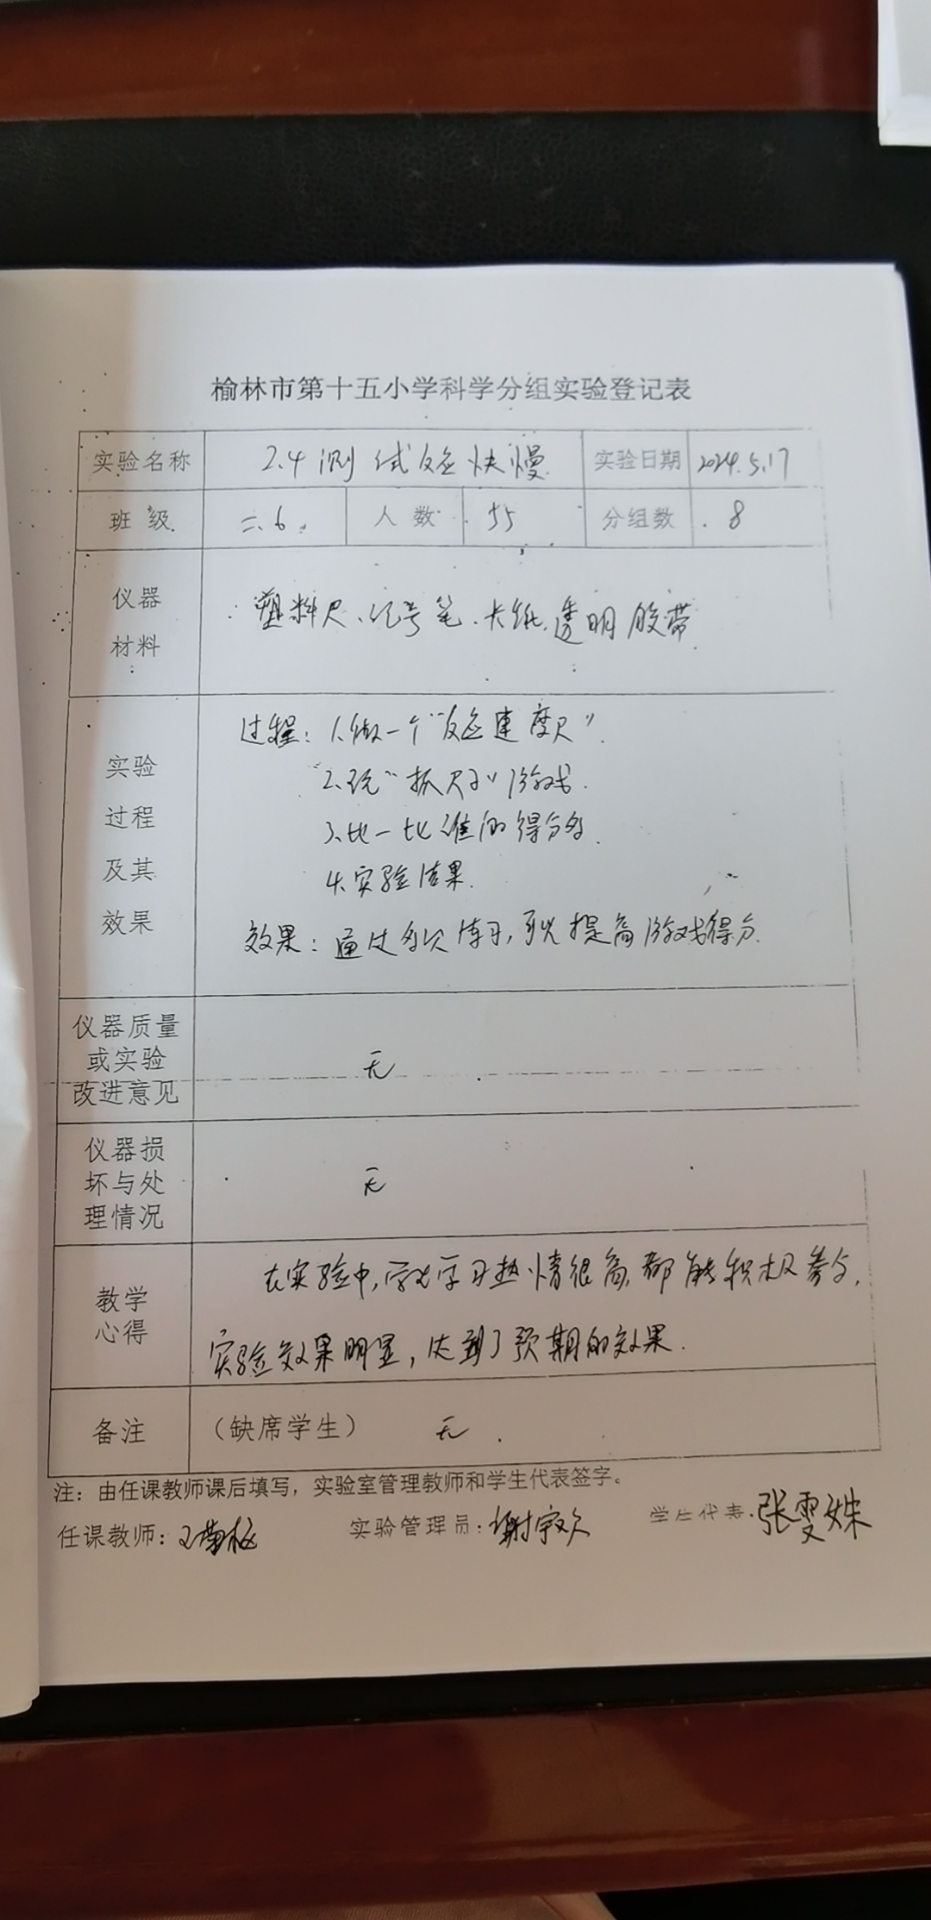 榆林市第十五小学科学分组实验登记表
实验名称 2.4 测试反应快慢 实验日期 2024.5.17
班级 二.6. 人数 55 分组数 8
仪器
材料
塑料尺、记号笔、卡纸、透明胶带
实验
过程
及其
效果
过程：1.做一个“反应速度尺”.
2.玩“抓尺子”游戏.
3.比一比谁的得分多.
4.实验结果.
效果：通过多次练习，可以提高游戏得分.
仪器质量
或实验
改进意见
无
仪器损
坏与处
理情况
无
教学
心得
在实验中，学生学习热情很高，都能积极参与，
实验效果明显，达到了预期的效果.
备注 （缺席学生） 无.
注：由任课教师课后填写，实验室管理教师和学生代表签字。
任课教师： 实验管理员： 学生代表：张雯姝